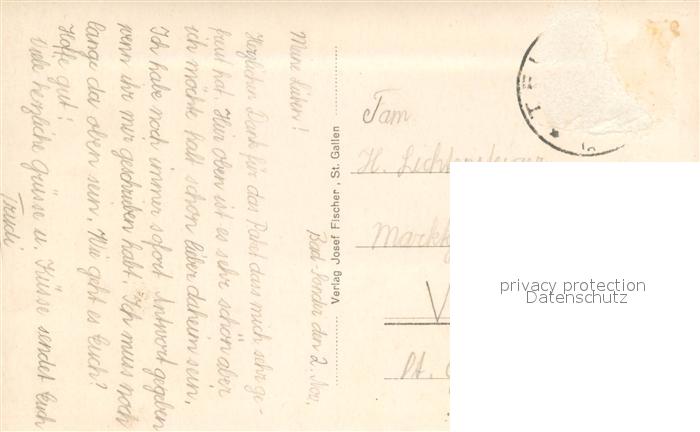 Bad-Sonder den 2. Nov.
Meine Lieben!
Herzlichen Dank für das Paket dass mich sehr ge-
freut hat. Hier oben ist es sehr schön aber
ich möchte halt schon lieber daheim sein,
Ich habe noch immer sofort Antwort gegeben
wenn ihr mir geschrieben habt. Ich muss noch
lange da oben sein. Wie geht es Euch?
Hoffe gut!
Viele herzliche Grüsse u. Küsse sendet Euch
Trudi
Verlag Josef Fischer, St. Gallen
Fam.
H. Lichtensteiger
Markt
V
St. G
privacy protection
Datenschutz